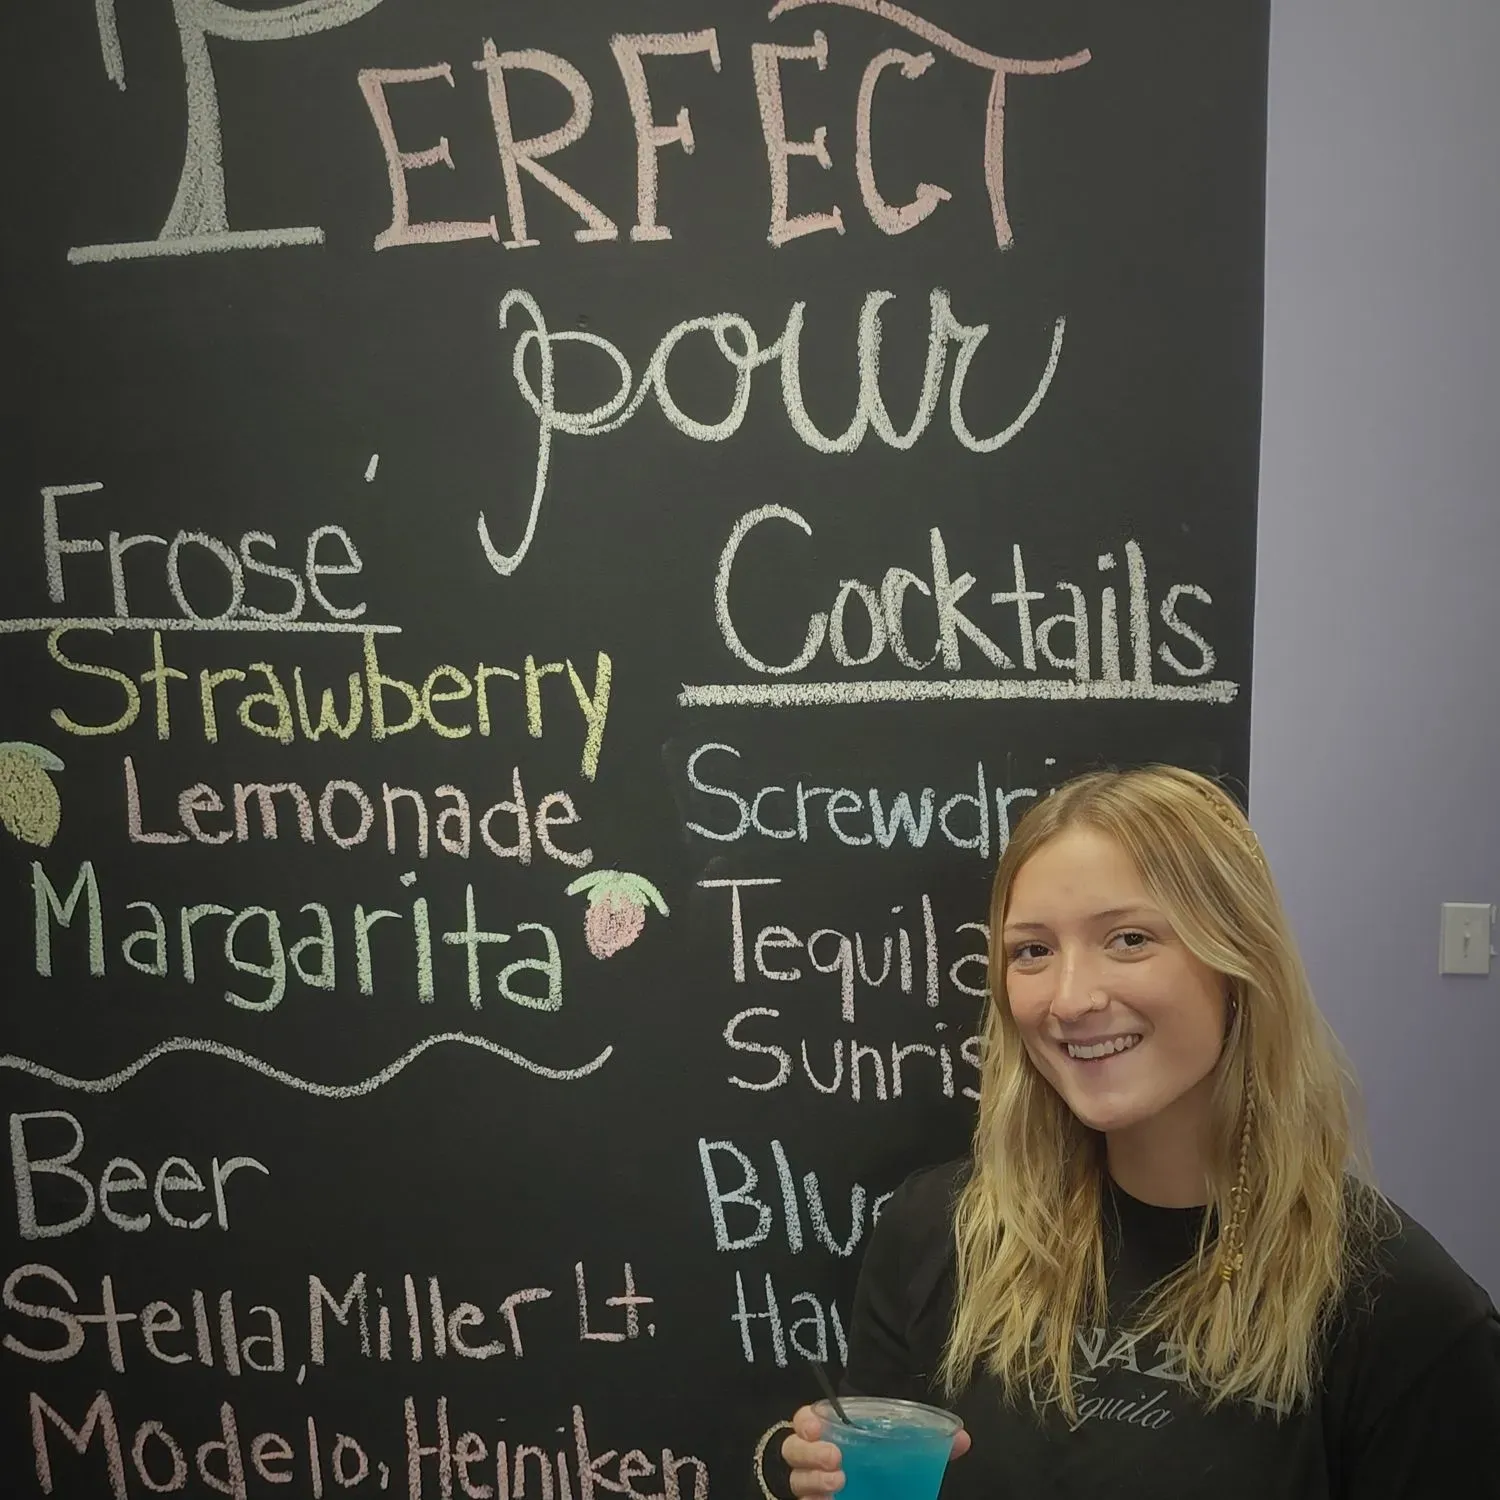 PERFECT
pour
Frosé
Strawberry
Lemonade
Margarita
Beer
Stella, Miller Lt.
Modelo, Heiniken
Cocktails
Screwdri
Tequila
Sunris
Blue
Haw
Tequila